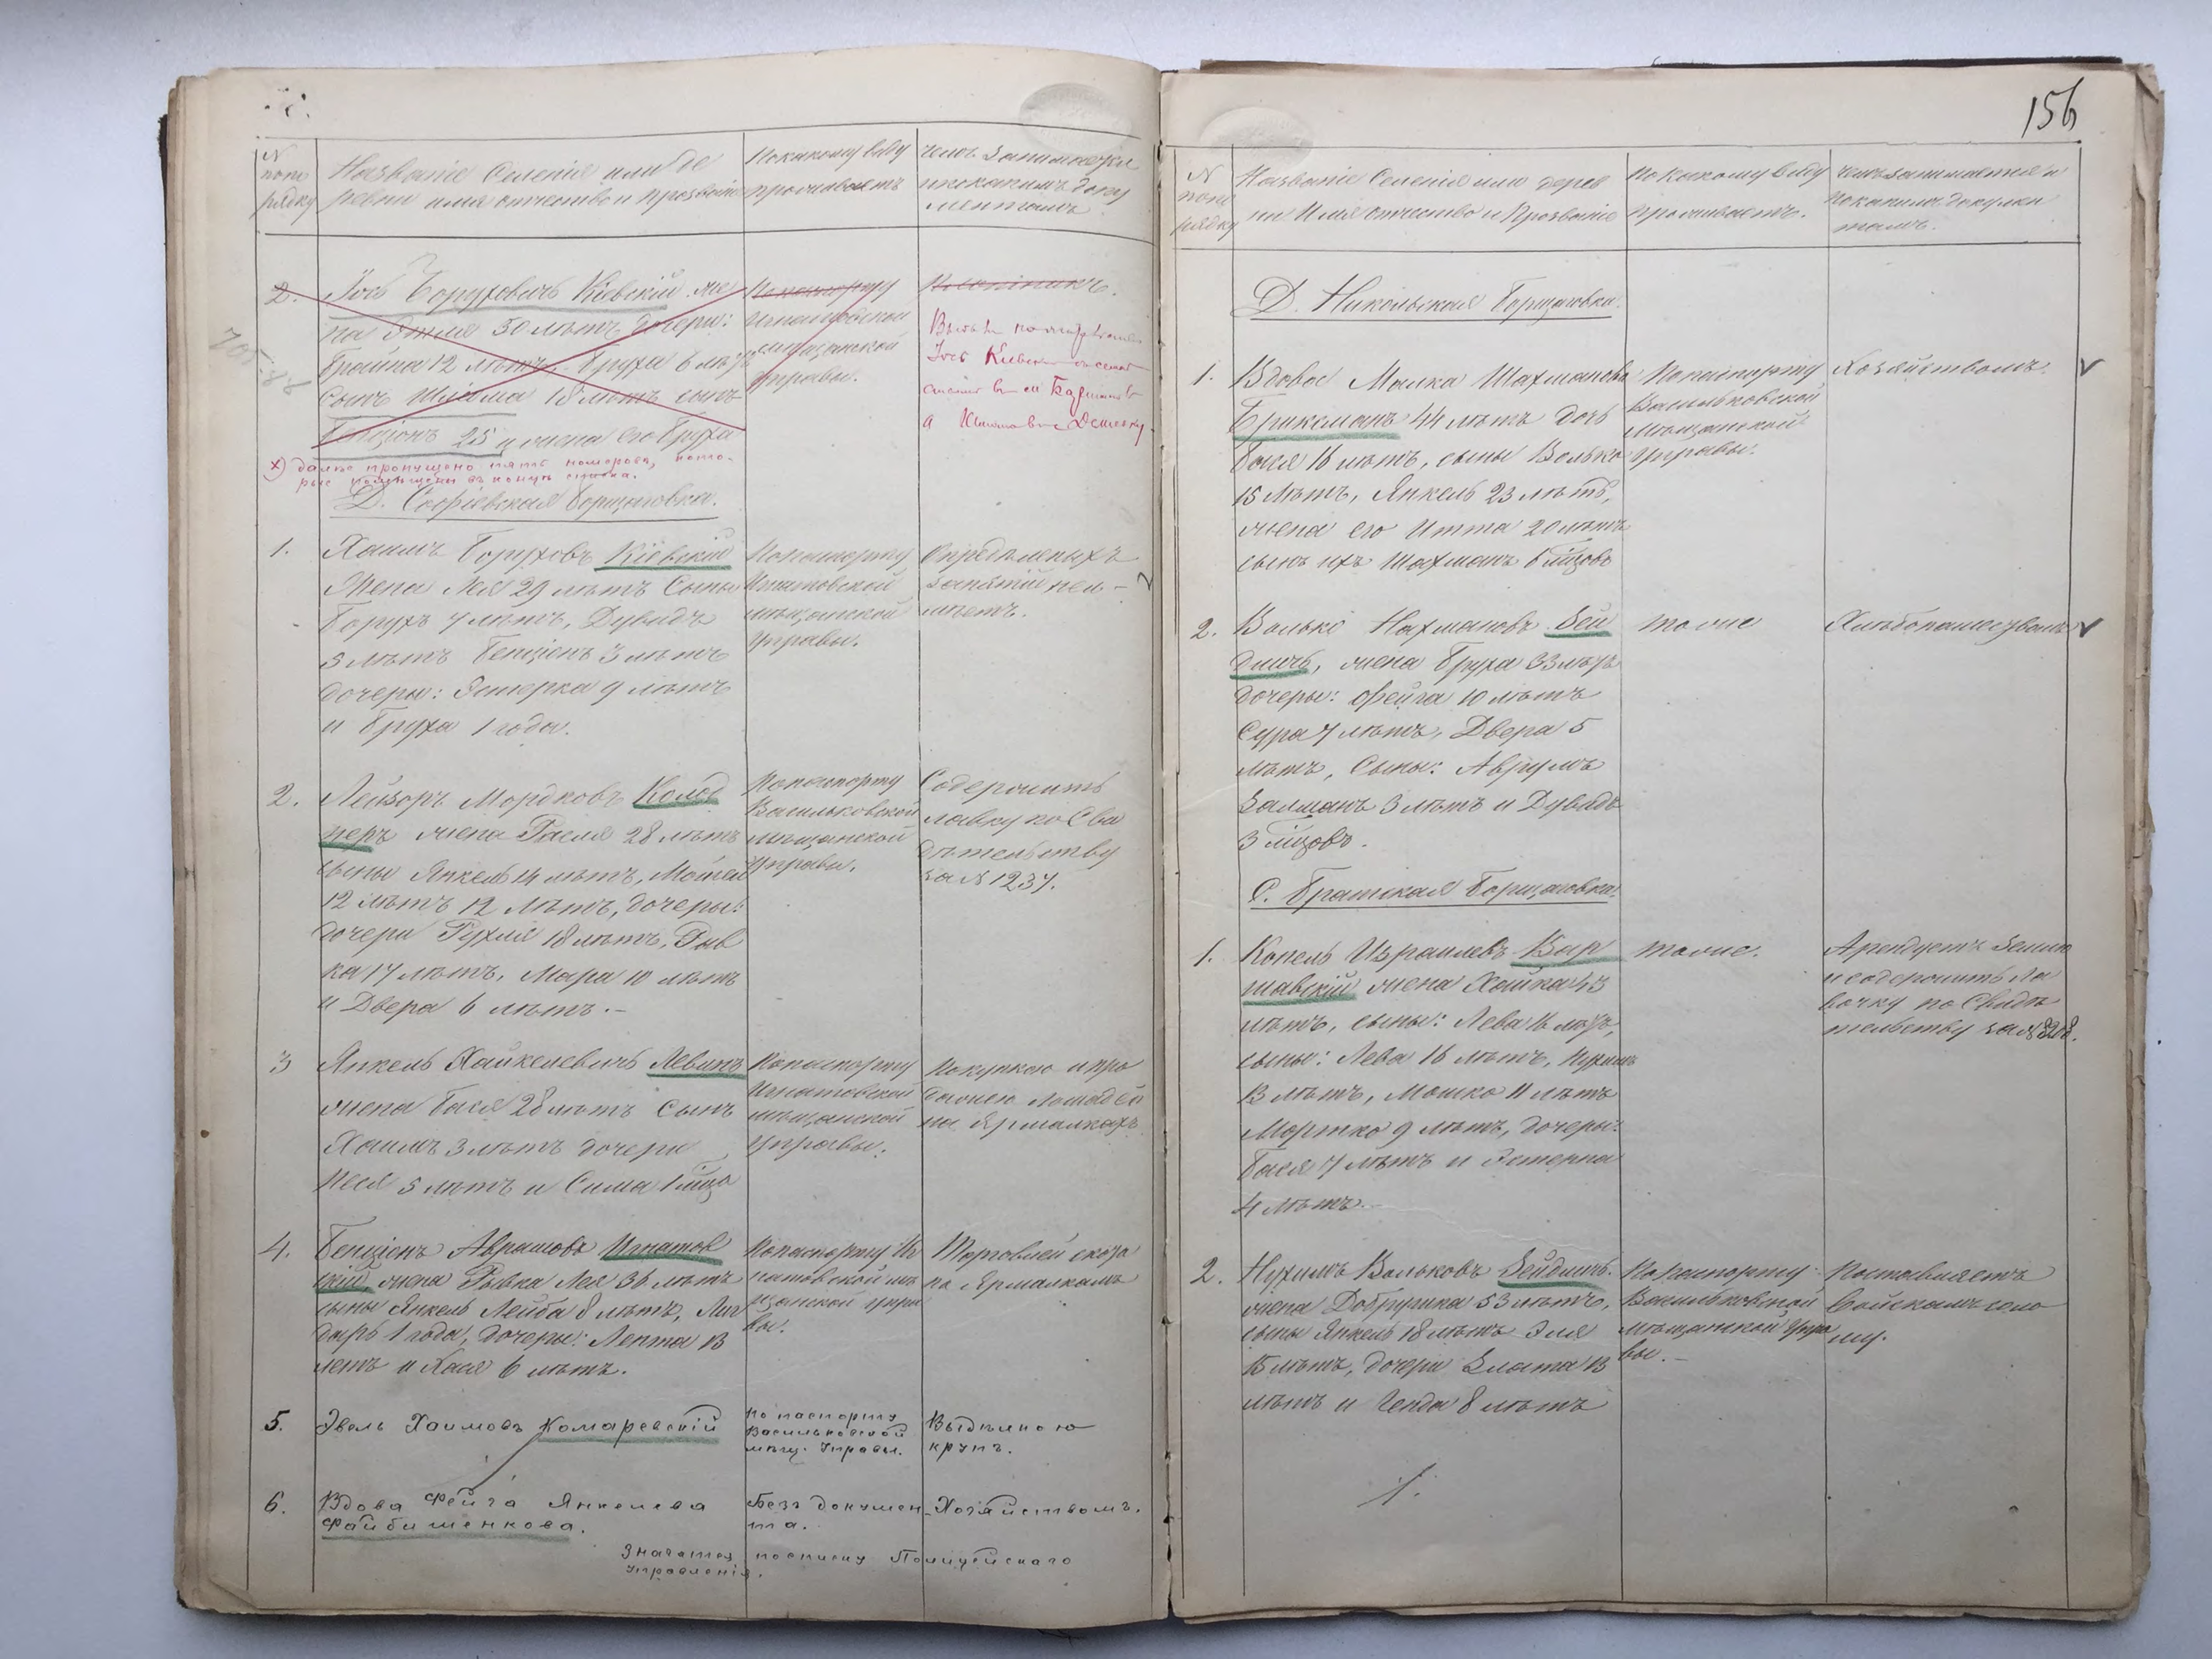 N
попо
рядку
Названіе Селенія или де
ревни имя отчество и прозваніе
По какому виду
проживаетъ
чемъ занимается
и по какимъ доку
ментамъ
2. Іосъ Боруховичъ Кіевскій же
на Этля 50 лѣтъ дочери:
Брайна 12 лѣтъ, Бруха 6 лѣтъ
сынъ Шлёма 18 лѣтъ сынъ
Бенціонъ 25 и жена его Бруха
По паспорту
Игнатовской
мѣщанской
Управы.
Іосъ Кіевскій
х) далѣе пропущено пять номеровъ, кото-
рые помѣщены въ концѣ списка.
Д. Софіевская Борщаговка.
1. Хаимъ Боруховъ Кіевскій
Жена Лея 29 лѣтъ Сыны
Борухъ 7 лѣтъ, Дувидъ
5 лѣтъ Бенціонъ 3 лѣтъ
дочеры: Эстерка 9 лѣтъ
и Бруха 1 года.
По паспорту
Игнатовской
мѣщанской
Управы.
Опредѣленыхъ
занятій неи-
мѣетъ.
2. Лейзоръ Мордковъ Колод
неръ жена Рася 28 лѣтъ
сыны Янкель 14 лѣтъ, Мойсей
12 лѣтъ 12 лѣтъ, дочеры:
дочери Рухля 18 лѣтъ, Рыв
ка 17 лѣтъ, Мара 10 лѣтъ
и Двера 6 лѣтъ.-
По паспорту
Васильковской
мѣщанской
Управы.
Содержитъ
лавку по Сви
дѣтельству
за N 1237.
3 Янкель Хайкелевичъ Левинъ
жена Бася 28 лѣтъ Сынъ
Хаимъ 3 лѣтъ дочери
Песя 5 лѣтъ и Сима 1 мѣся
По паспорту
Игнатовской
мѣщанской
Управы.
Покупкою и про
дажею лошадей
на Ярмалкахъ
4. Бенціонъ Аврамовъ Игнатов
скій жена Рывка Лея 36 лѣтъ
сыны Янкель Лейба 8 лѣтъ,
1 года, дочеры: 13
летъ и Хася 6 лѣтъ.
По паспорту Иг
натовской мѣ
щанской упра
вы.
Торговлей скота
по Ярмалкамъ
5. Эвель Хаимовъ Комаревскій
По паспорту
Васильковской
мѣщ. Управы.
Выдѣлкою
крупъ.
6. Вдова Фейга Янкелева
Файбишенкова.
Безъ докумен-
та.
Хозяйствомъ.
Значатся по списку Полицейскаго
Управленія.
156
N
попо
рядку
Названіе Селенія или дерев
ни Имя отчество и Прозваніе
По какому виду
проживаетъ.
Чемъ занимается и
по какимъ докумен
тамъ.
Д. Никольская Борщаговка.
1. Вдова Малка Шахманова
Бриксманъ 44 лѣтъ дочь
Бася 16 лѣтъ, сыны Волько
15 лѣтъ, Янкель 23 лѣтъ,
жена его Итта 20 лѣтъ
сынъ ихъ Шахманъ 6 мѣцовъ
По паспорту
Васильковской
Мѣщанской
Управы.
Хозяйствомъ.
2. Волько Нахмановъ Зей
дличъ, жена Бруха 33 лѣтъ
дочеры: Фейга 10 лѣтъ
Сура 7 лѣтъ, Двера 5
лѣтъ, Сыны: Аврумъ
Залманъ 3 лѣтъ и Дувидъ
3 мѣцовъ.
тоже
Хлѣбопашествомъ
С. Братская Борщаговка.
1. Копель Израилевъ Вар
шавскій жена Хайка 43
лѣтъ, сыны: Лева 16 лѣтъ,
сыны: Лева 16 лѣтъ, Нухимъ
13 лѣтъ, Мошко 11 лѣтъ
Мортко 9 лѣтъ, дочеры:
Бася 7 лѣтъ и Эстерка
4 лѣтъ.
тоже.
Арендуетъ землю
и содержитъ ла
вочку по Свидѣ
тельству за N 828.
2. Нухимъ Вольковъ Зейдличъ.
жена Добрушка 53 лѣтъ,
сыны Янкель 18 лѣтъ Эля
15 лѣтъ, дочери Злата 13
лѣтъ и Генда 8 лѣтъ
По паспорту
Васильковской
мѣщанской Упра
вы.-
Поставляетъ
Войскамъ соло
му.